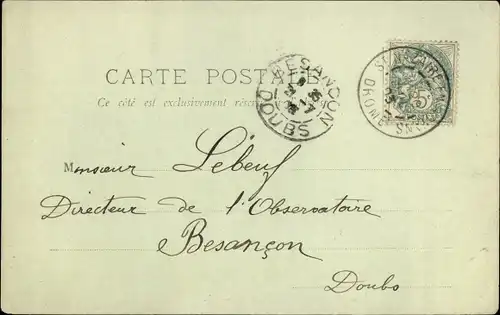 CARTE POSTALE
Ce côté est exclusivement
BESANÇON
DOUBS
DROME
5
Monsieur Lebeuf
Directeur de l'Observatoire
Besançon
Doubs